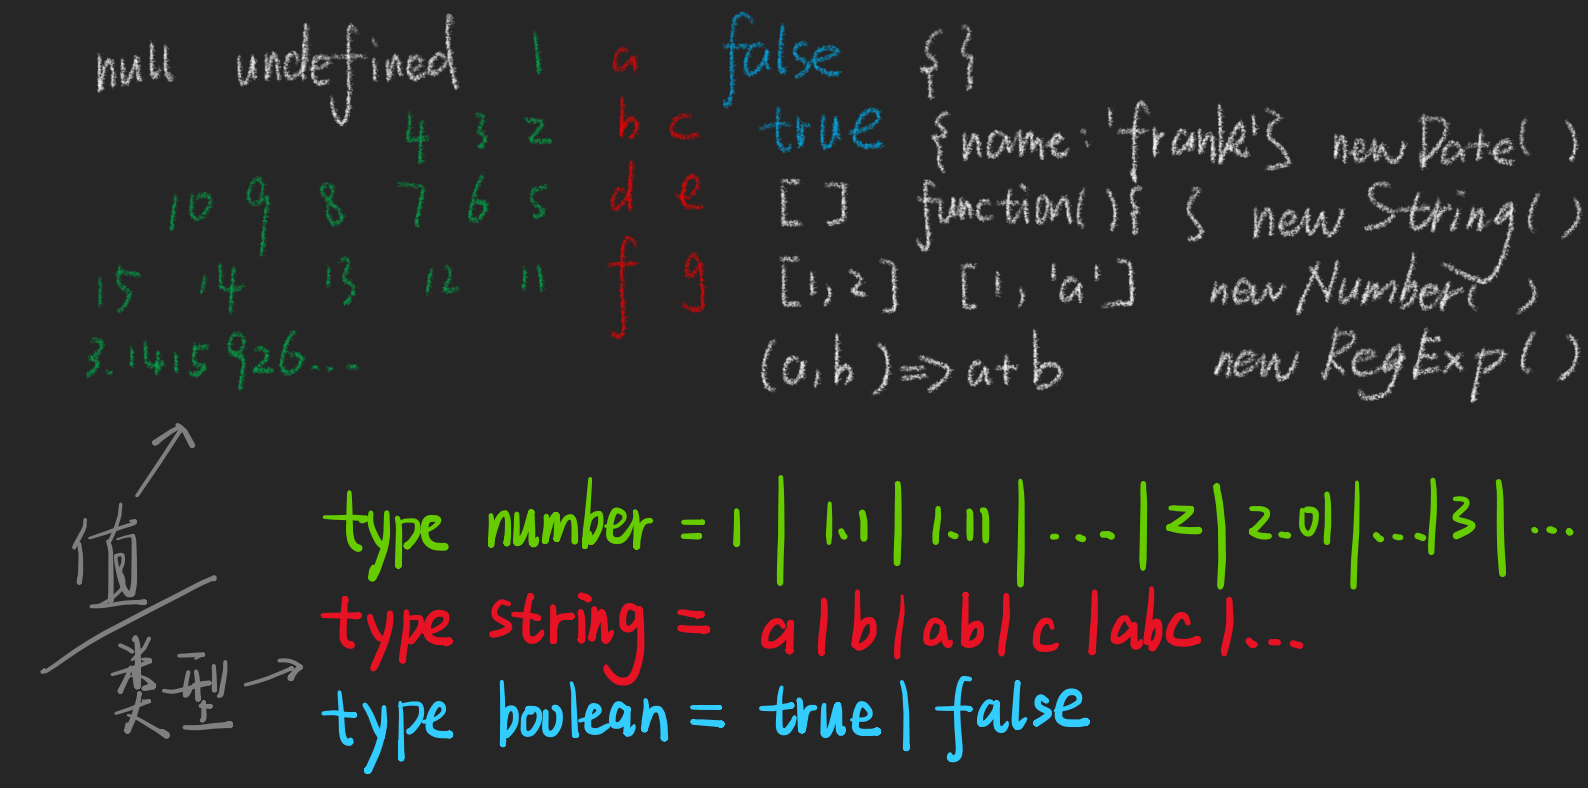 null undefined 1 a false {}
4 3 2 b c true {name:'frank'} new Date()
10 9 8 7 6 5 d e [] function(){ } new String()
15 14 13 12 11 f g [1,2] [1,'a'] new Number()
3.1415926... (a,b)=>a+b new RegExp()
值
类型
type number = 1 | 1.1 | 1.11 | .... | 2 | 2.01 | ... | 3 | ...
type string = a | b | ab | c | abc | ...
type boolean = true | false